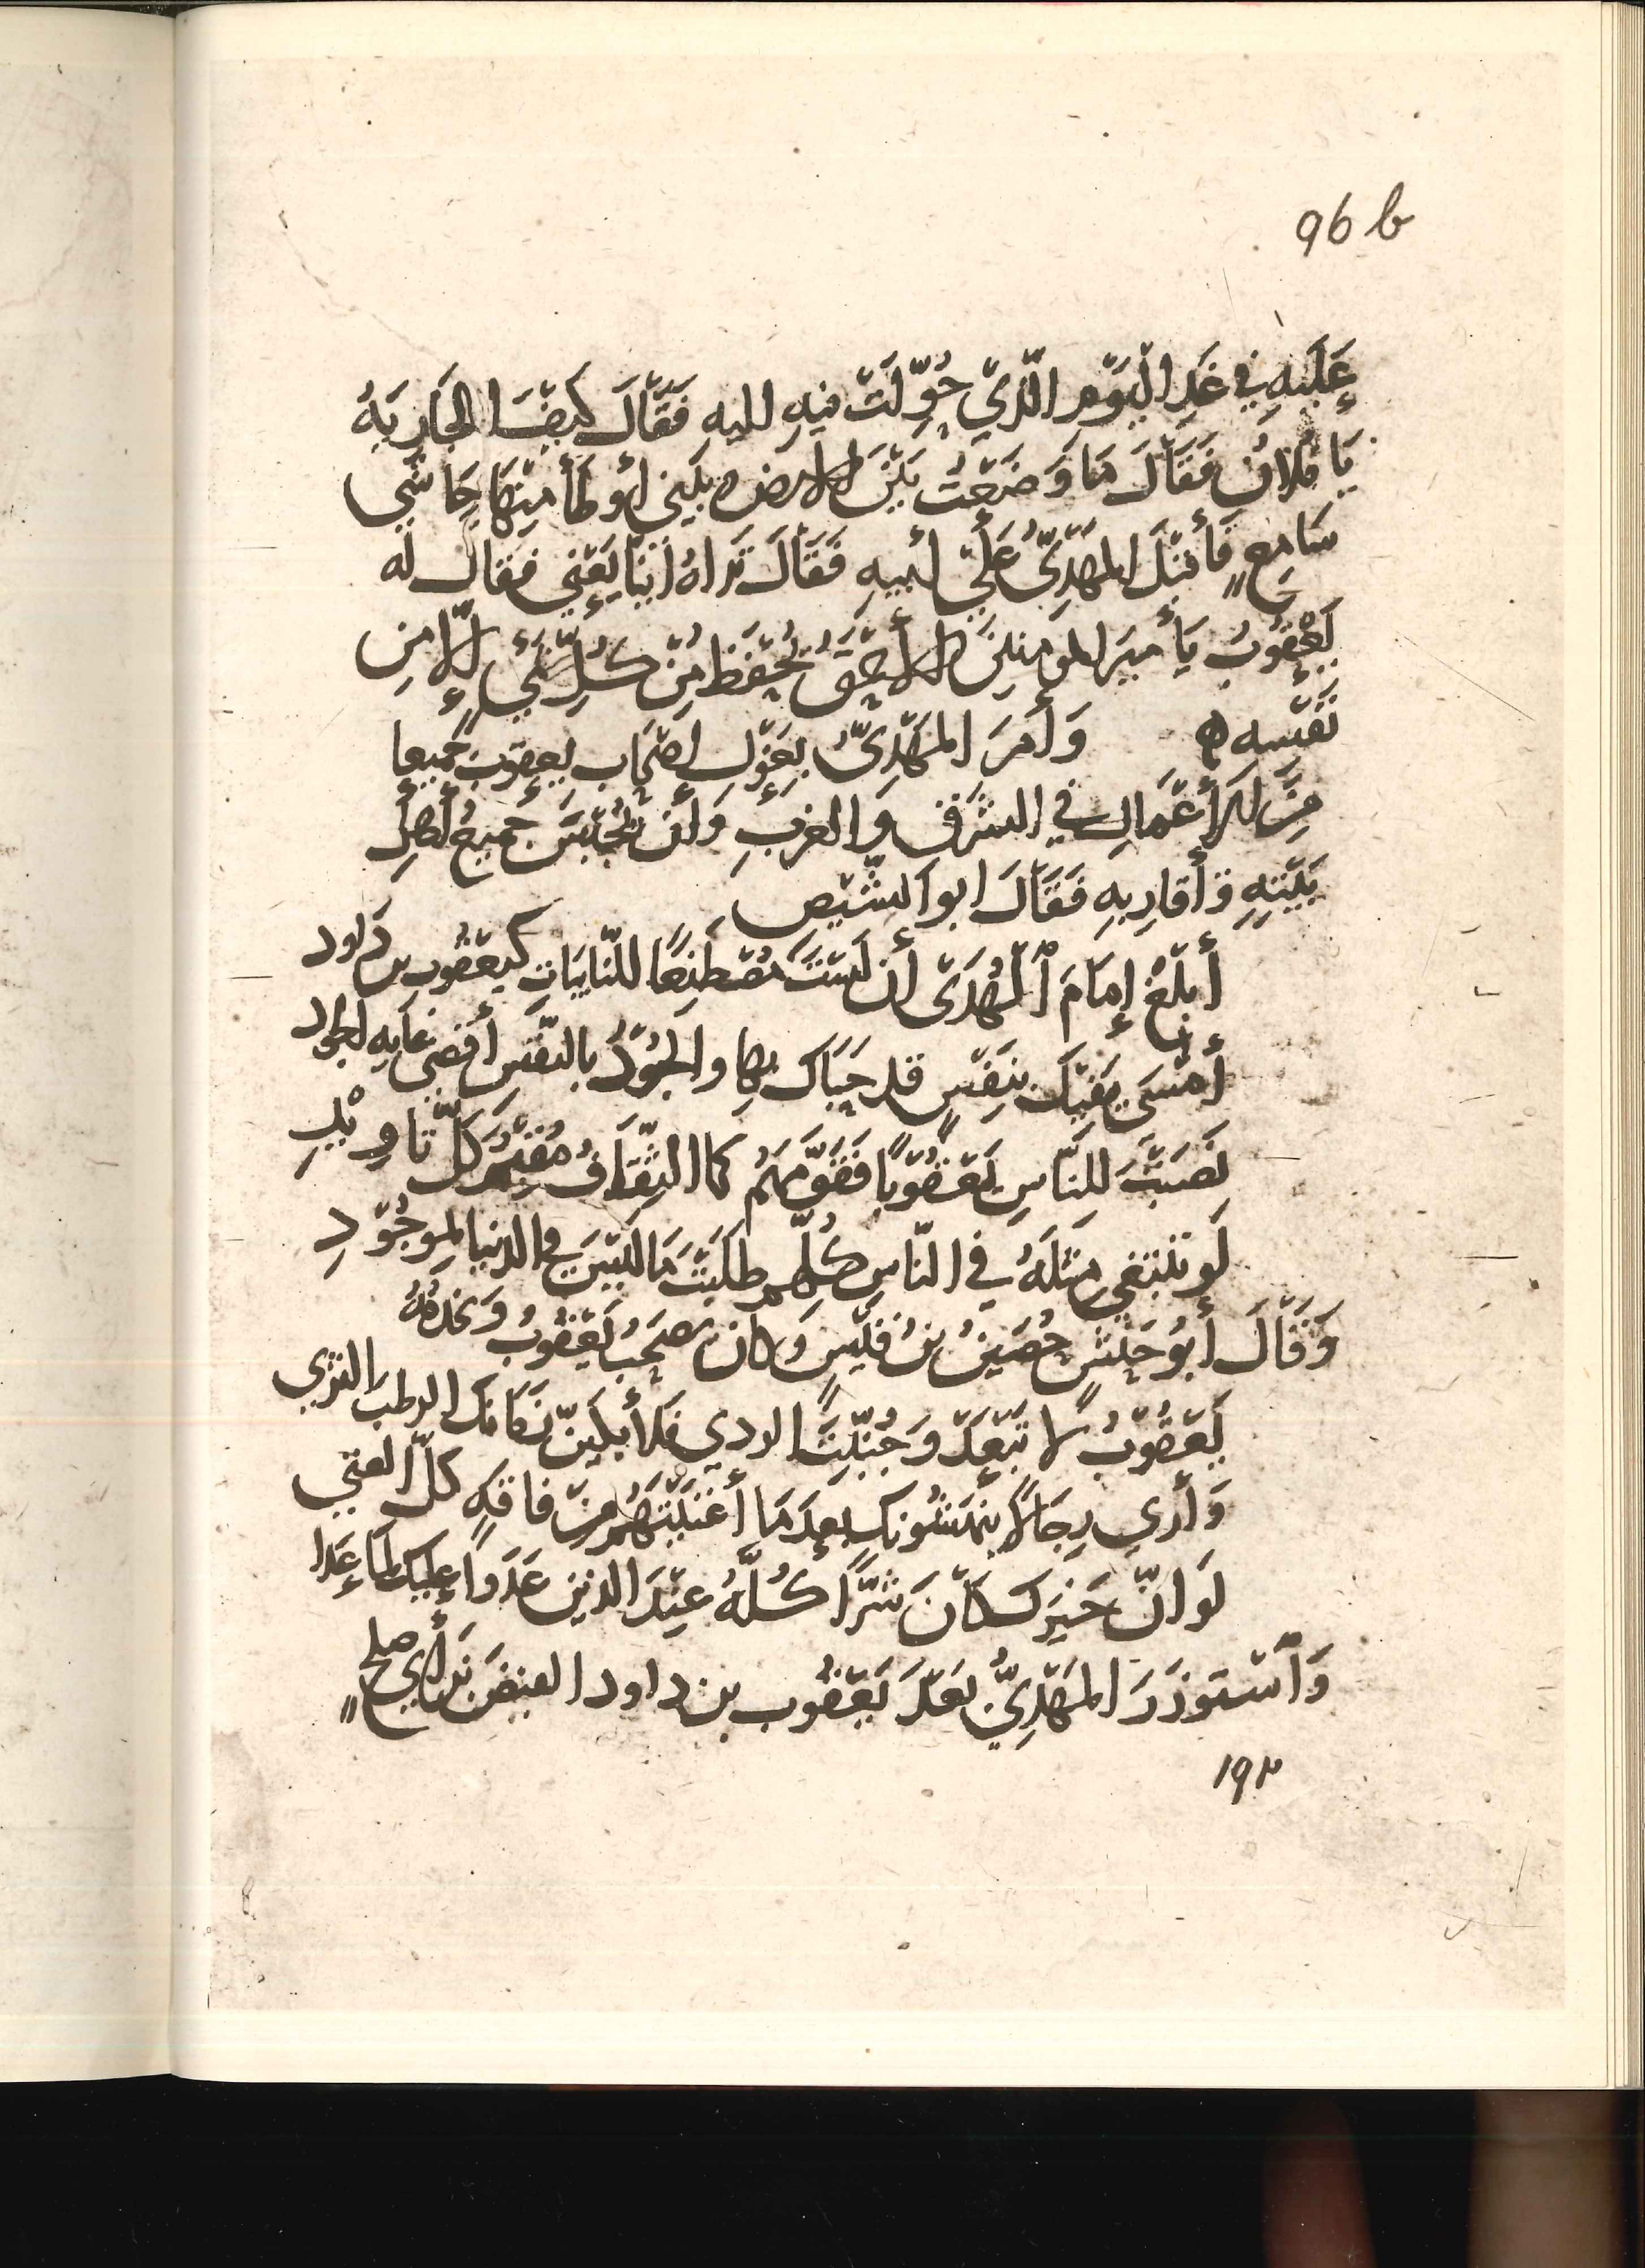 96 b
عَلَيهِ في غَدِ اليَوْمِ الّذِي حُوِّلَتْ فيهِ اليهِ فَقَالَ كَيفَ الجَارِيَةُ
يَا فُلانُ فَقَالَ مَا وَضَعْتُ بَيْنَ الارض وبَيني أوطَأ مِنْهَا حَاشَى
سَامِعٍ فَأقبَلَ المَهْدِيُّ عَلَى ابيهِ فَقَالَ تَراهُ أيّنَا يَعْنِي فقال له
يَعْقُوبُ يَا أميرَ المومنينَ الأحْمَقُ يُحْفَظُ مِنْ كُلِّ شَيءٍ إلّا مِن
نَفْسِهِ ه وَأمَرَ المَهْدِيُّ بِعَزْلِ اصْحَابِ يعقوبَ جَميعا
مِنَ الأَعْمَالِ في الشَرْقِ وَالغربِ وَأن يُحْبَسَ جَميعُ أهلِ
بَيْتِهِ وَأقارِبِهِ فَقَالَ ابو الشِّيصِ
أبلِغْ إمَامَ ٱلْهُدَى أن لَسْتَ مُصْطَنِعًا للنّايبَاتِ كيعقُوب بن دَاود
أمْسَى يَقيكَ بنَفْسٍ قد حَبَاكَ بها والجُوْدُ بالنَفْسِ أقصَى غايةِ الجود
نَصَبْتَ لِلنّاسِ يَعْقُوْبًا فَقَوَّمَهُم كما الثِّقَافُ مُقِيْمٌ كلَّ تاوِيْدِ
لَو تبتغي مِثلَهُ في النّاسِ كُلّهمِ طلَبْتَ مَا لَيْسَ في الدنيا بِمَوجُوْدِ
وَقَالَ أبُو حَنَشٍ حُصَينُ بنُ قَيْسٍ وَكان يصحَبُ يَعْقُوبُ وَيخدمُهُ
يَعقُوبُ لا تَبْعَدْ وَجُنِّبْتَ الردي فَلأبكيَنّ زَمَانَك الرطبَ الثرَي
وَأرى رِجَالًا يَنهَشُونك بعدَ مَا أغنَيْتَهُم مِنْ فاقةٍ كلّ الغنى
لَو انّ خَيرَك كَانَ شَرّاً كُلُّهُ عِنْدَ الذين عَدَوا عليكَ لمَا عَدا
وَٱسْتَوزَرَ المَهْدِيُّ بَعْدَ يَعقُوب بن داود الفيضَ بنَ أبي صلحٍ
١٩٢